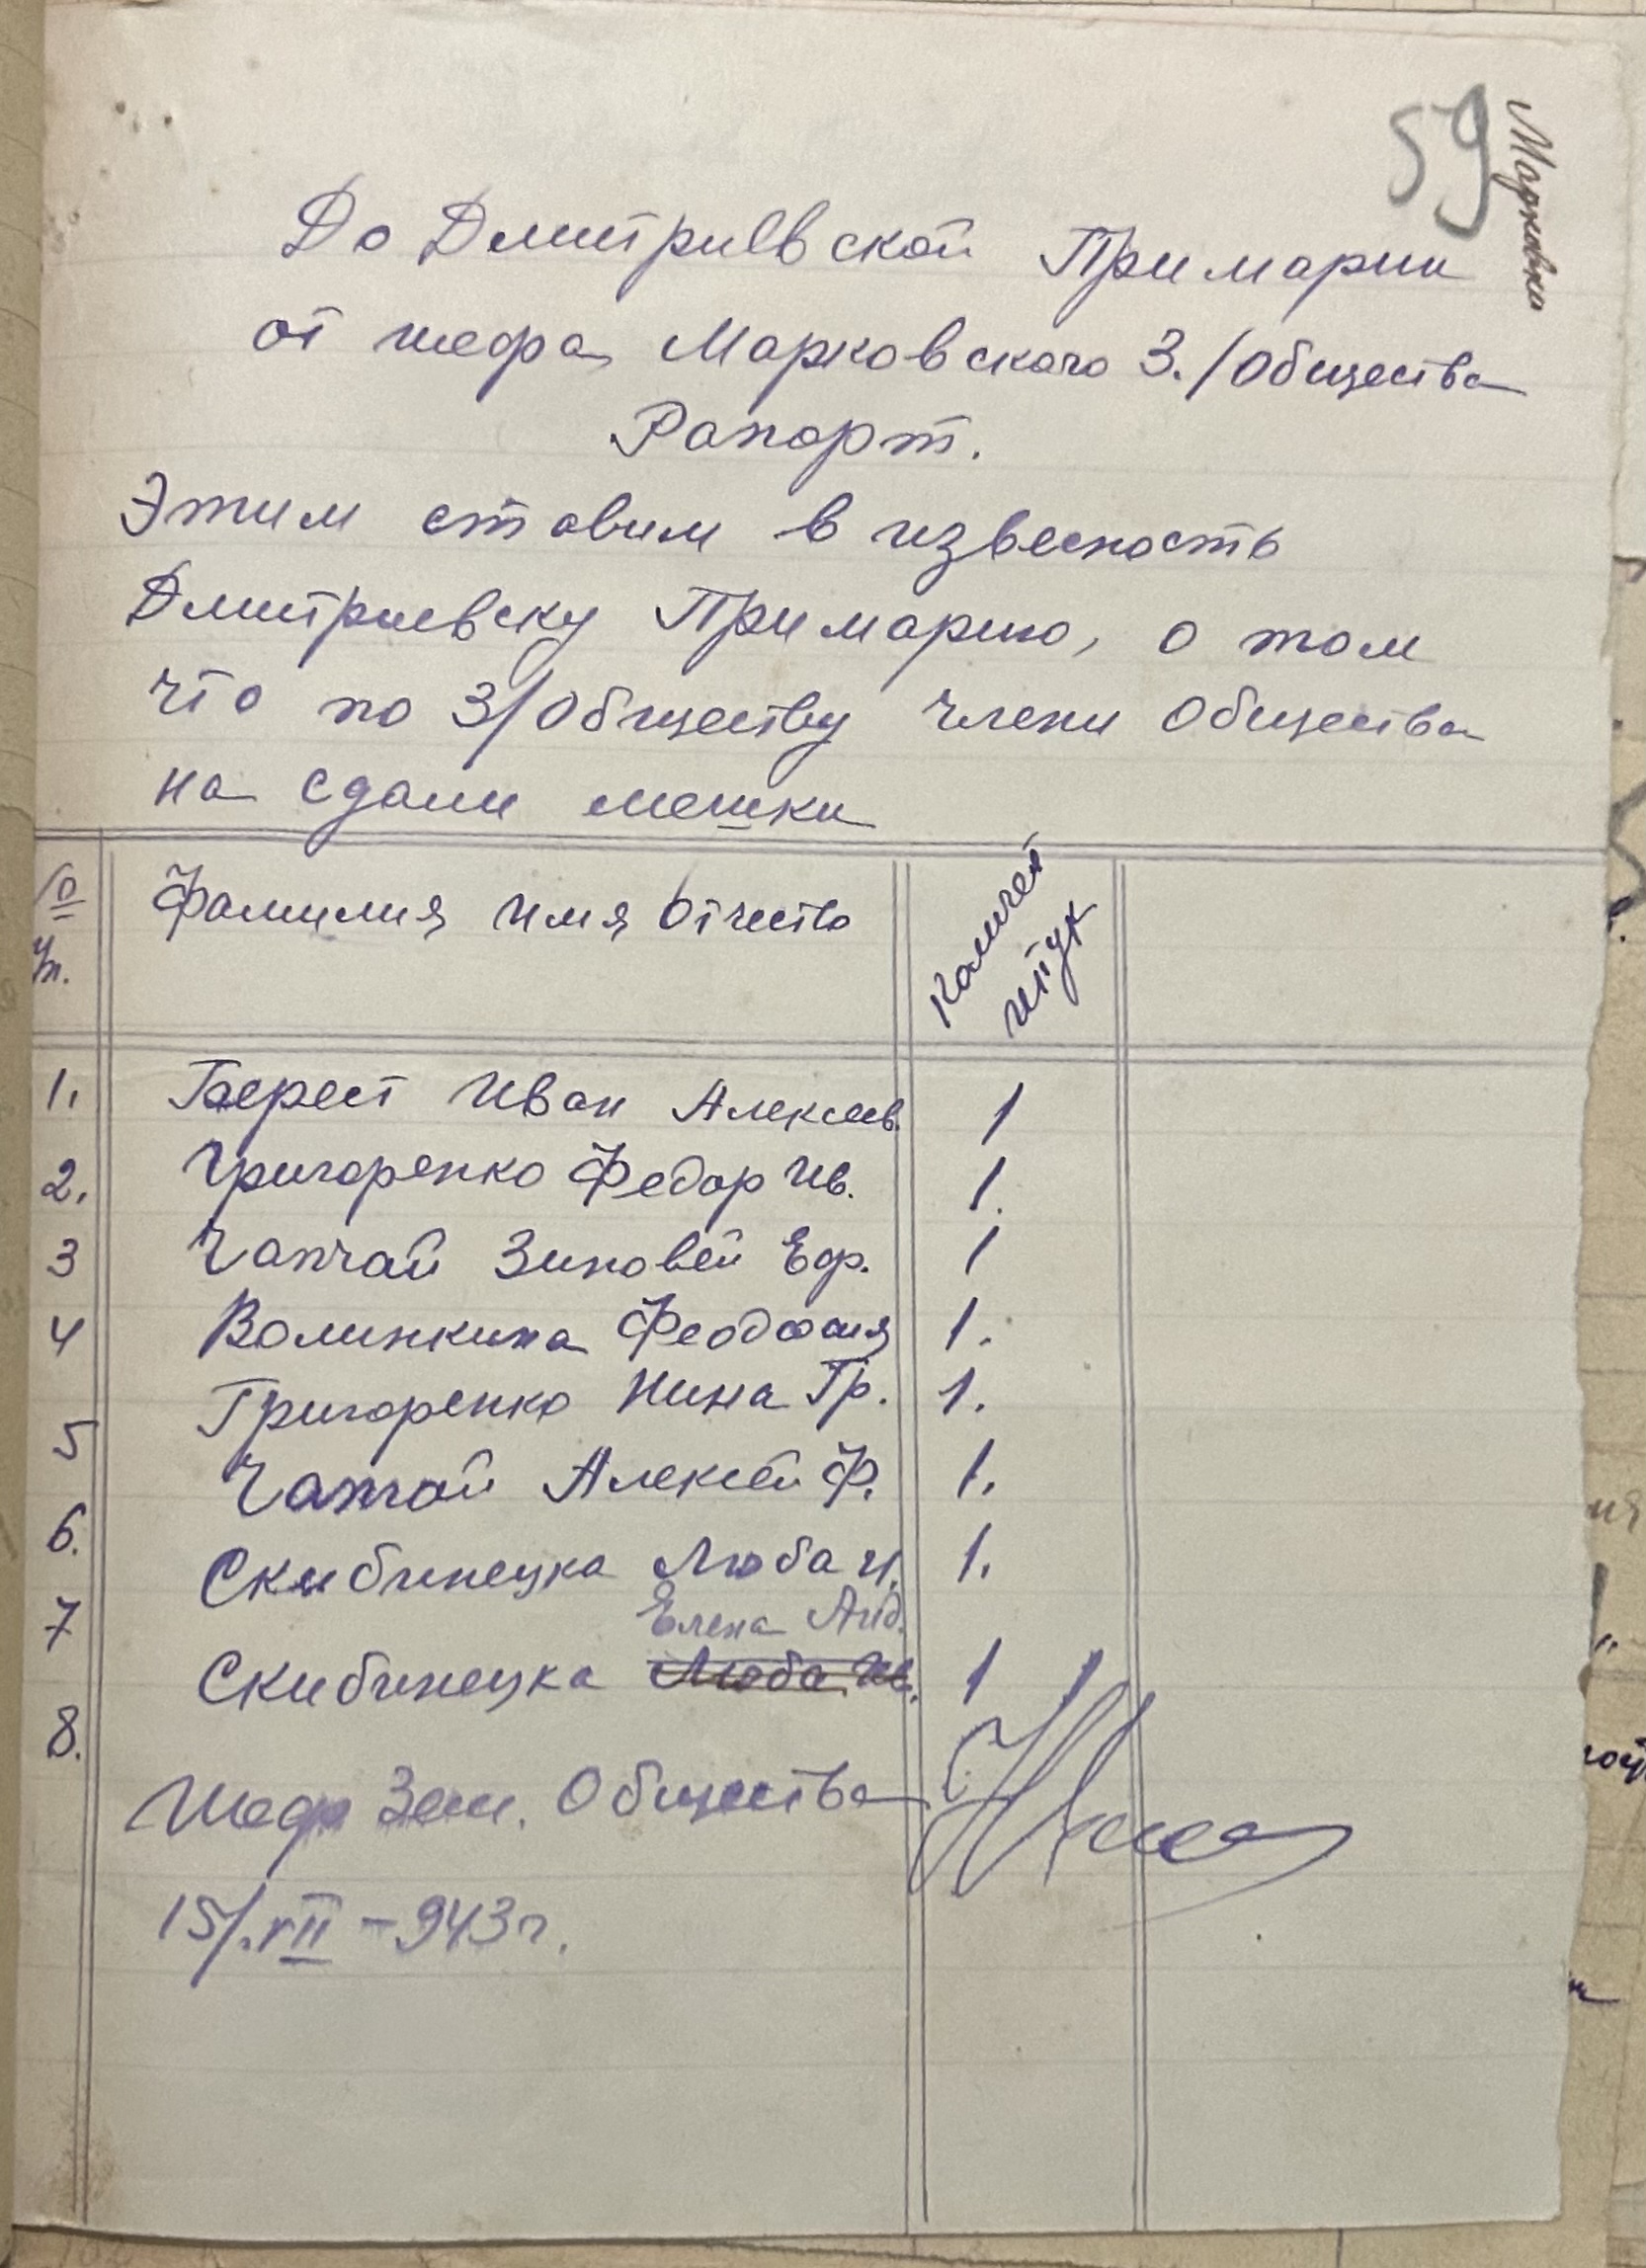 59
Марковка
До Дмитриевской Примарии
от шефа Марковского З./Общества
Рапорт.
Этим ставим в извесность
Дмитриевску Примарию, о том
что по З/Обществу члени Общества
на сдали мешки
Фамилия имя Отчество
Количест
штук
1. Иван Алексеев. 1
2. Григоренко Федор Ив. 1.
3 Чапчай Зиновей Еф. 1
4 Волинкина Феодосия 1.
5 Григоренко Нина Гр. 1.
6. Чапчай Алексей Ф. 1.
7 Скибинецка Люба И. 1.
Елена Анд.
8. Скибинецка Люба Ив. 1
Шеф Зем. Общества
15/.VII - 943 г.